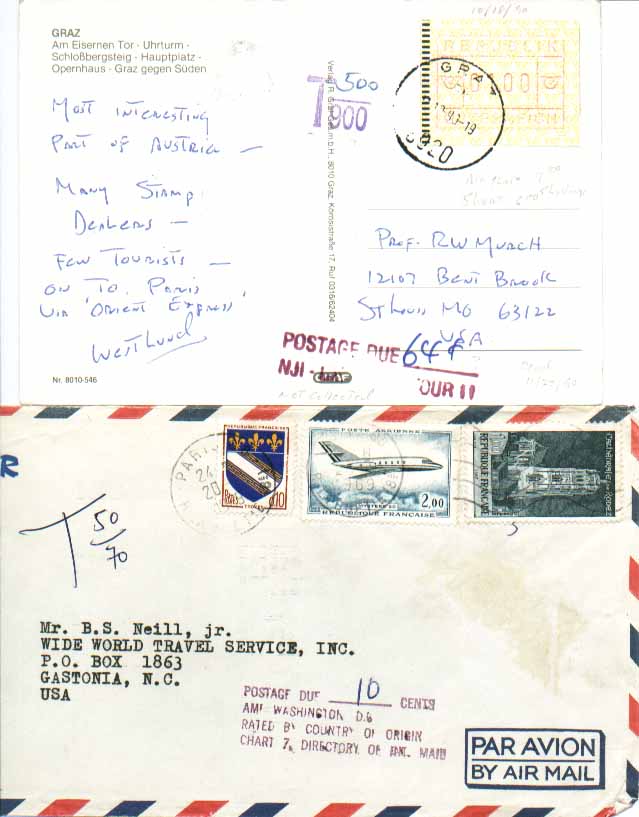 GRAZ
Am Eisernen Tor - Uhrturm -
Schloßbergsteig - Hauptplatz -
Opernhaus - Graz gegen Süden
MOST INTERESTING
PART OF AUSTRIA —
MANY STAMP
DEALERS —
FEW TOURISTS —
ON TO PARIS
VIA 'ORIENT EXPRESS'
WESTLUND
Nr. 8010-546
10/18/90
T 500
900
REPUBLIK
ÖSTERREICH
GRAZ
8020
PROF. RW MURCH
12107 BENT BROOK
ST LOUIS MO 63122
USA
POSTAGE DUE 64¢
NJI -
OUR 11
NOT Collected
R
T 50
70
PARIS
24
20
REPUBLIQUE FRANÇAISE
0,10
TROYES
POSTE AERIENNE
2,00
REPUBLIQUE FRANÇAISE
REPUBLIQUE FRANÇAISE
Mr. B.S. Neill, jr.
WIDE WORLD TRAVEL SERVICE, INC.
P.O. BOX 1863
GASTONIA, N.C.
USA
POSTAGE DUE 10 CENTS
AMF WASHINGTON D.C
RATED BY COUNTRY OF ORIGIN
CHART 7, DIRECTORY OF INT. MAIL
PAR AVION
BY AIR MAIL